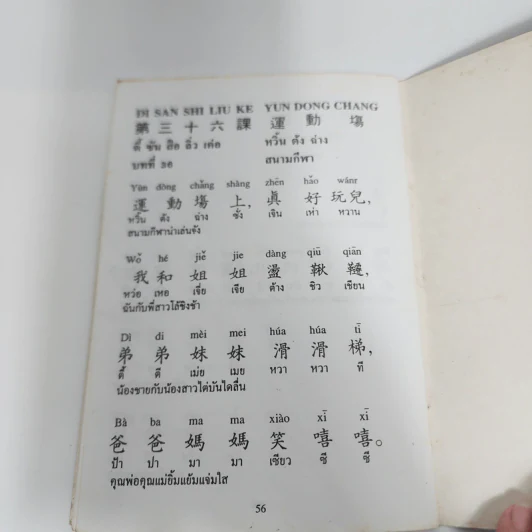 DI SAN SHI LIU KE YUN DONG CHANG
第三十六課 運動塲
ตี้ ซัน สือ ลิ่ว เค่อ หวิ้น ต้ง ฉ่าง
บทที่ 36 สนามกีฬา
Yùn dòng chǎng shàng zhēn hǎo wánr
運動塲上，眞好玩兒，
หวิ้น ต้ง ฉ่าง ซั่ง เจิน เห่า หวาน
สนามกีฬาน่าเล่นจัง
Wǒ hé jiě jie dàng qiū qiān
我和姐姐盪鞦韆，
หว่อ เหอ เจี่ย เจีย ต้าง ชิว เชียน
ฉันกับพี่สาวโล้ชิงช้า
Dì di mèi mei húa húa tī
弟弟妹妹滑滑梯，
ตี้ ตี เม่ย เมย หวา หวา ที
น้องชายกับน้องสาวไต่บันไดลื่น
Bà ba ma ma xiào xī xī
爸爸媽媽笑嘻嘻。
ป้า ปา มา มา เซี่ยว ซี ซี
คุณพ่อคุณแม่ยิ้มแย้มแจ่มใส
56